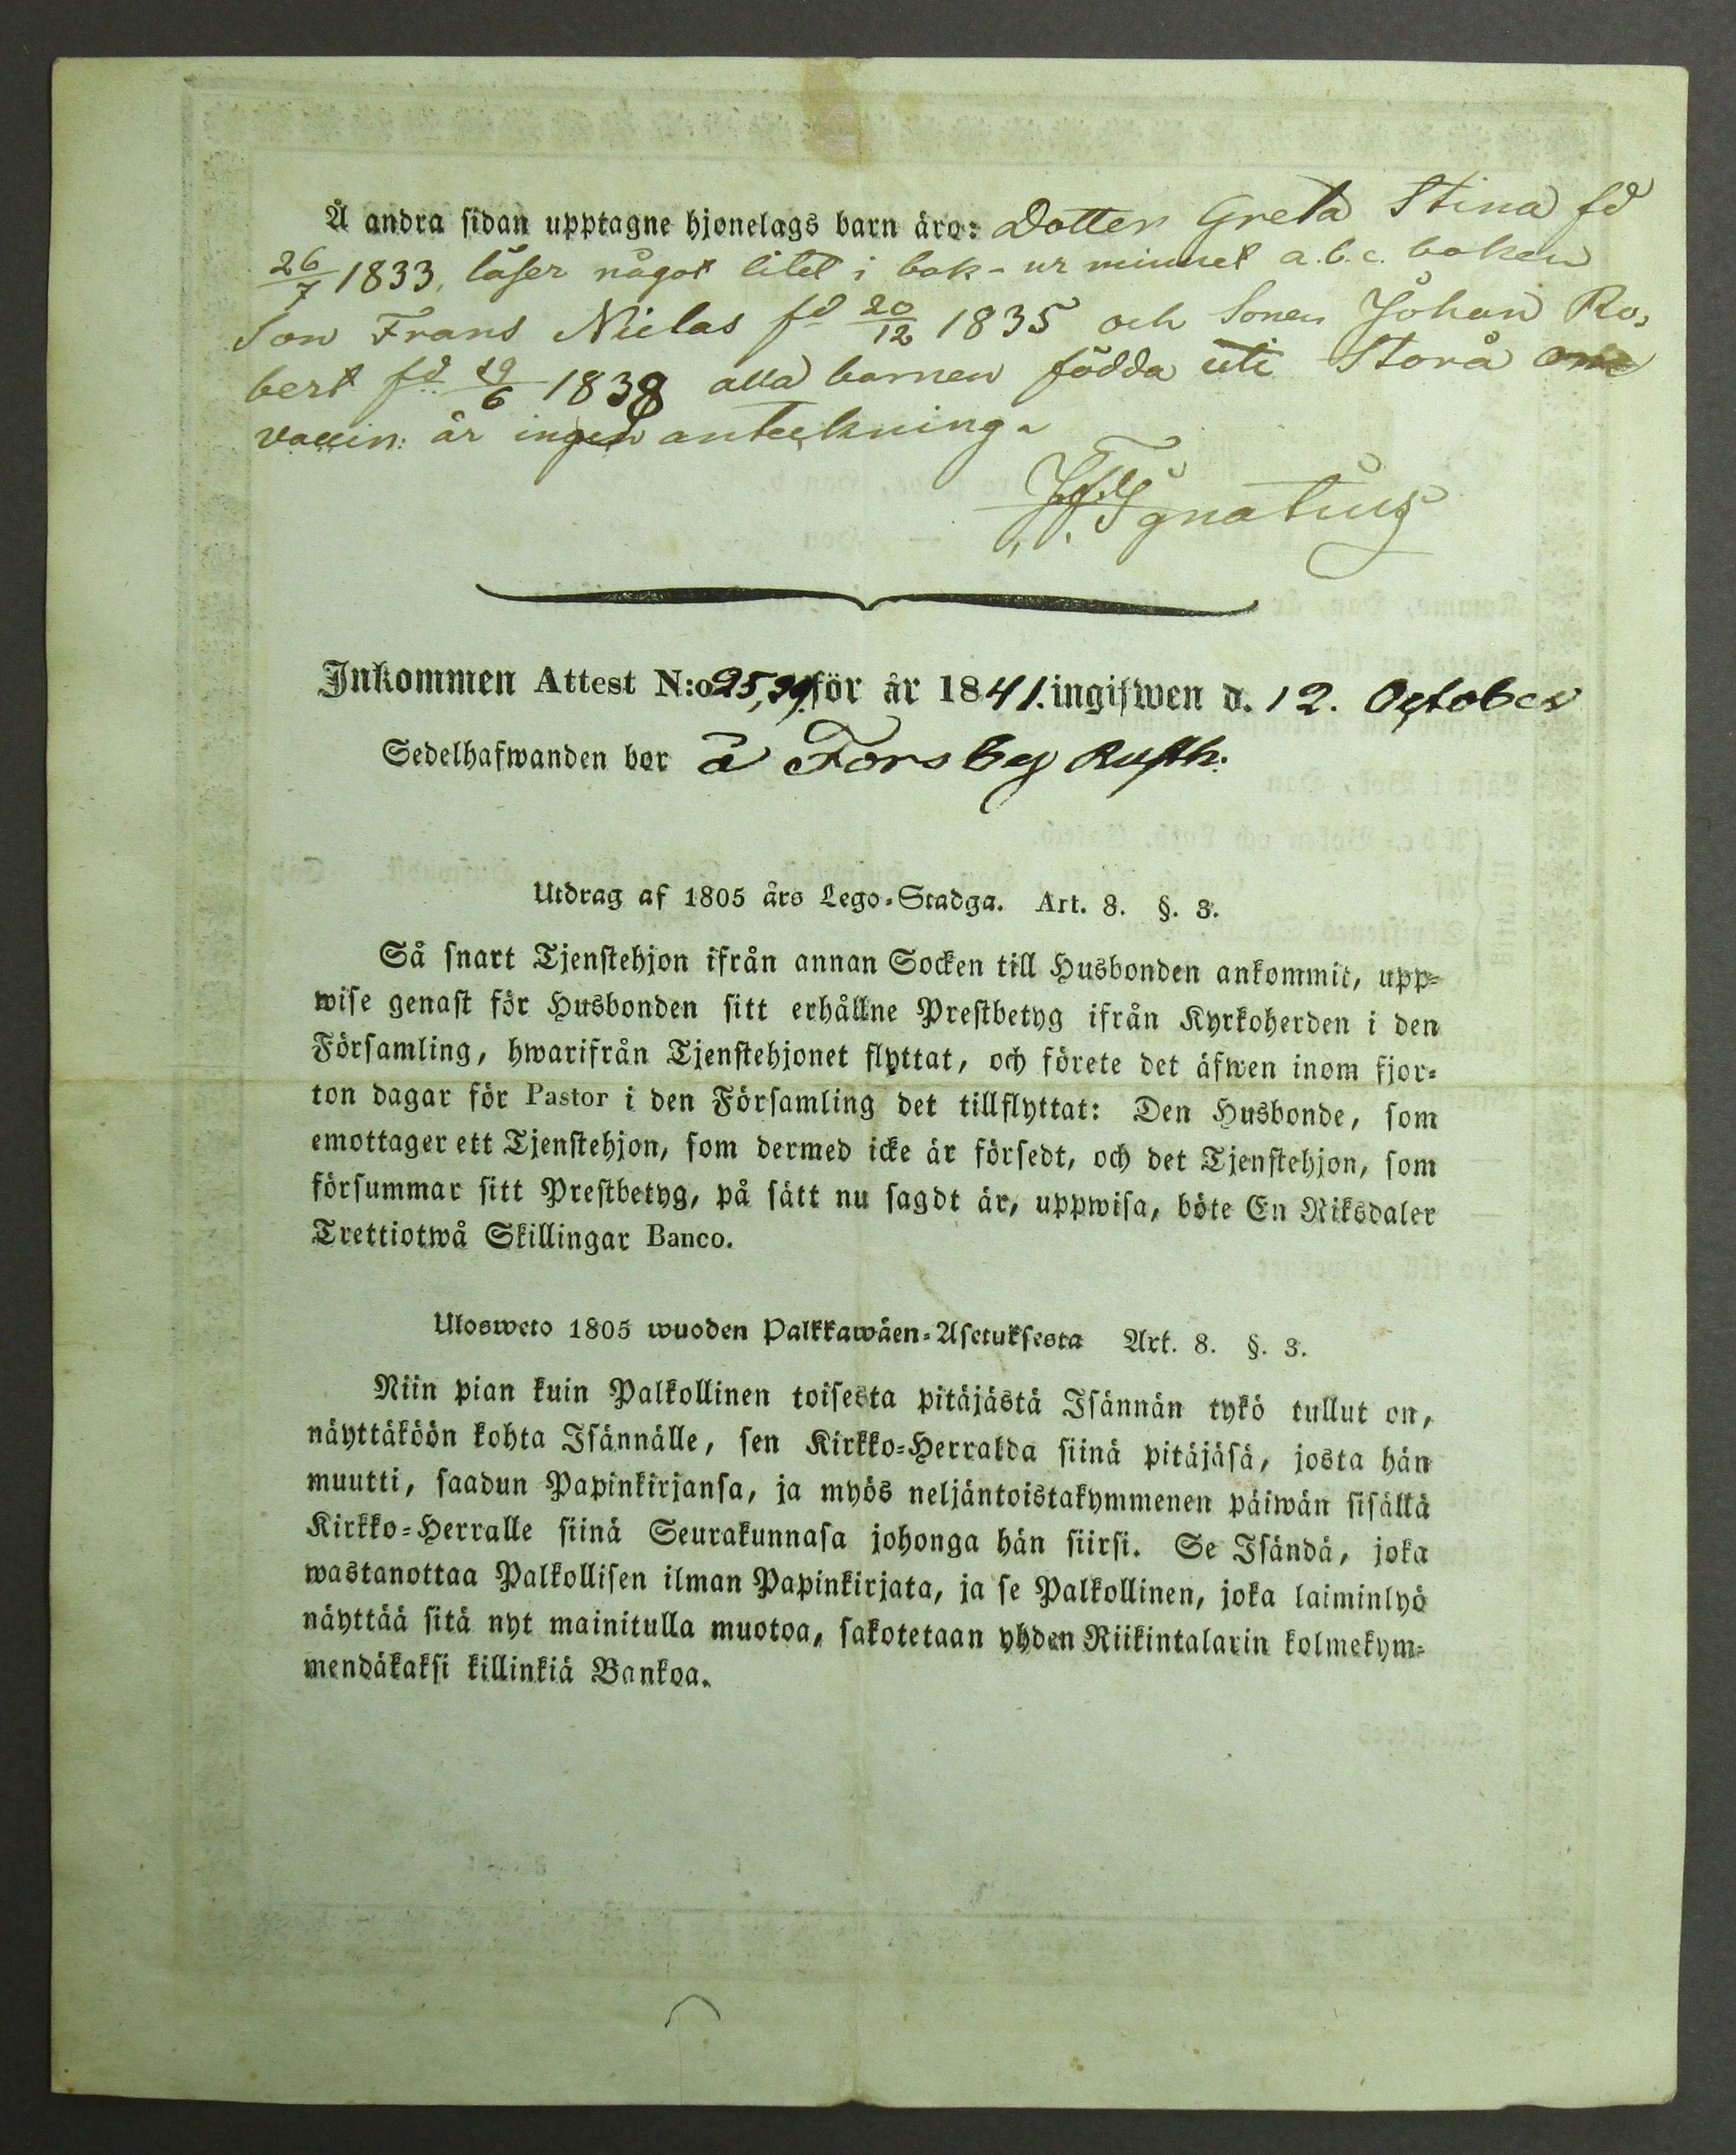 Å andra sidan upptagne hjonelags barn äro: Dotter Greta Stina fd
26/7 1833, läser något litet i bok - ur minnet a.b.c. boken
Son Frans Niclas fd 20/12 1835 och Sonen Johan Ro,
bert fd 19/6 1838 alla barnen födda uti Storå om
vaccin: är ingen anteckning.
Ignatius
Inkommen Attest N:o 25, för år 1841. ingifwen d. 12. October
Sedelhafwanden bor å Forsby Rusth.
Utdrag af 1805 års Lego-Stadga. Art. 8. §. 3.
Så snart Tjenstehjon ifrån annan Socken till Husbonden ankommit, upp-
wise genast för Husbonden sitt erhållne Prestbetyg ifrån Kyrkoherden i den
Församling, hwarifrån Tjenstehjonet flyttat, och förete det äfwen inom fjor-
ton dagar för Pastor i den Församling det tillflyttat: Den Husbonde, som
emottager ett Tjenstehjon, som dermed icke är försedt, och det Tjenstehjon, som
försummar sitt Prestbetyg, på sätt nu sagdt är, uppwisa, böte En Riksdaler
Trettiotwå Skillingar Banco.
Ulosweto 1805 wuoden Palkkawäen-Asetuksesta Art. 8. §. 3.
Niin pian kuin Palkollinen toisesta pitäjästä Isännän tykö tullut on,
näyttäköön kohta Isännälle, sen Kirkko-Herralda siinä pitäjäsä, josta hän
muutti, saadun Papinkirjansa, ja myös neljäntoistakymmenen päiwän sisällä
Kirkko-Herralle siinä Seurakunnasa johonga hän siirsi. Se Isändä, joka
wastanottaa Palkollisen ilman Papinkirjata, ja se Palkollinen, joka laiminlyö
näyttää sitä nyt mainitulla muotoa, sakotetaan yhden Riikintalarin kolmekym-
mendäkaksi killinkiä Bankoa.